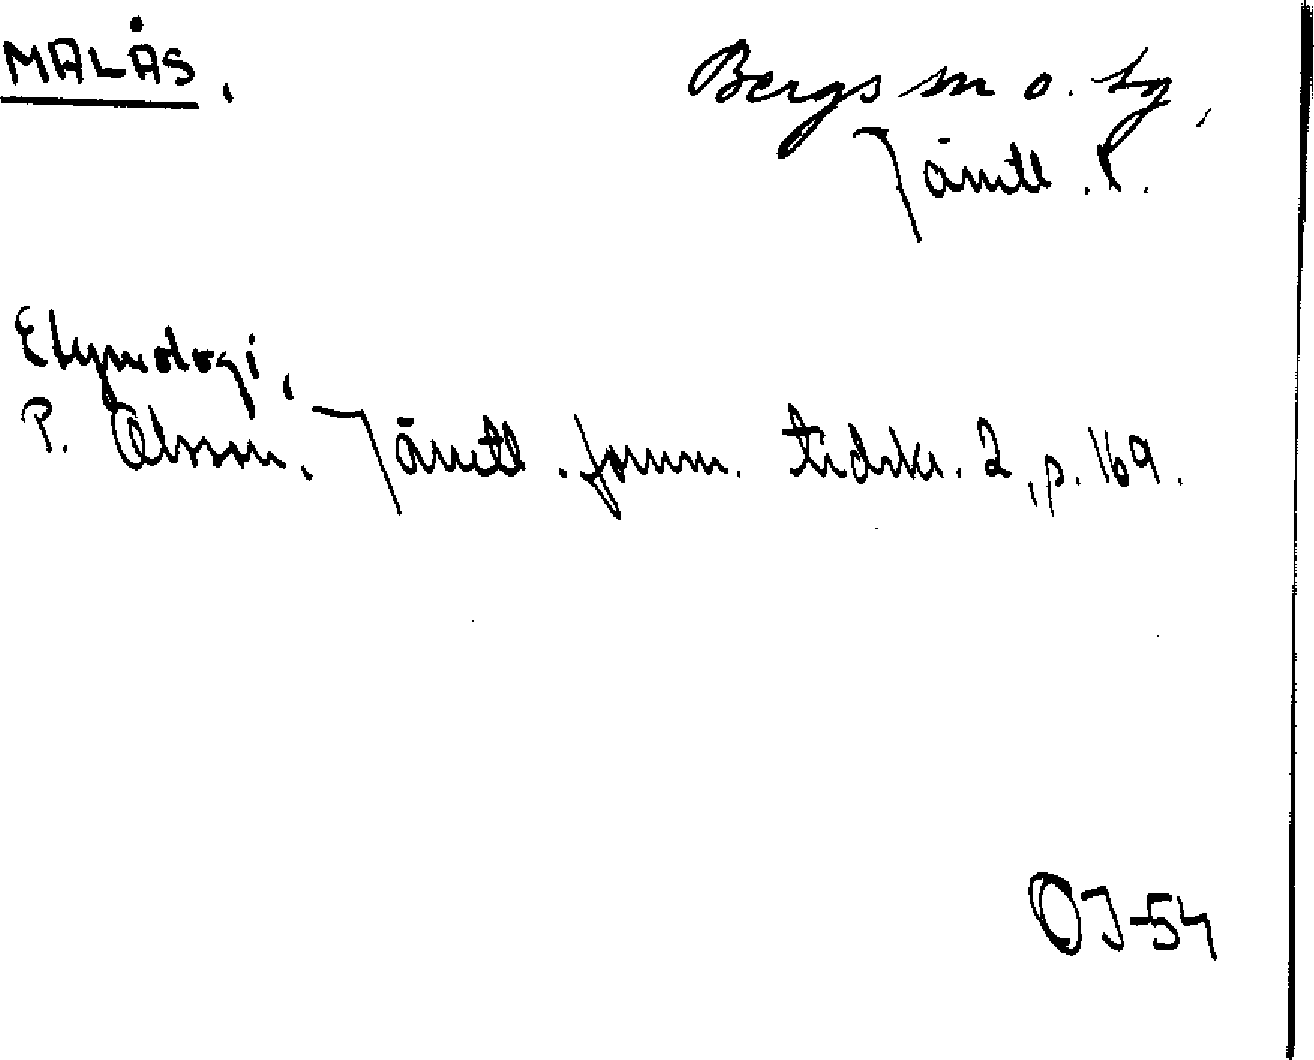 MALÅS.
Bergs sn o. tg,
Jämtl. l.
Etymologi.
P. Olsson. Jämtl. fornm. tidskr. 2, p. 169.
OJ-54